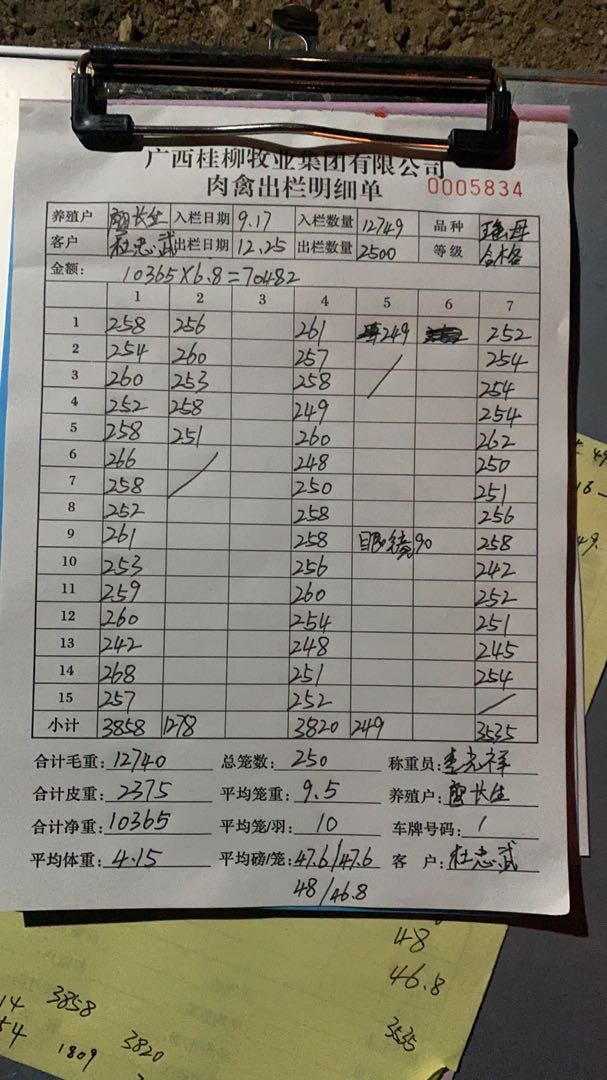 广西桂柳牧业集团有限公司
肉禽出栏明细单 0005834
养殖户 廖长生 入栏日期 9.17 入栏数量 12749 品种 瑶母
客户 杜志武 出栏日期 12.25 出栏数量 2500 等级 合格
金额: 10365×6.8=70482
1 2 3 4 5 6 7
1 258 256 261 249 252
2 254 260 257 254
3 260 253 258 254
4 252 258 249 254
5 258 251 260 262
6 266 248 250
7 258 250 251
8 252 258 256
9 261 258 眼镜90 258
10 253 256 242
11 259 260 252
12 260 254 251
13 242 248 245
14 268 251 254
15 257 252
小计 3858 1278 3820 249 3535
合计毛重: 12740 总笼数: 250 称重员: 光祥
合计皮重: 2375 平均笼重: 9.5 养殖户: 廖长生
合计净重: 10365 平均笼/羽: 10 车牌号码: 1
平均体重: 4.15 平均磅/笼: 47.6/47.6 客户: 杜志武
48/46.8
48
46.8
14 3858 3820 3535
54 1809